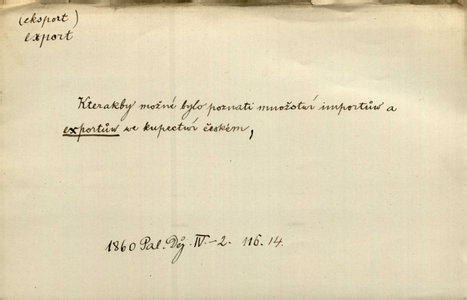 (eksport)
export
Kterakby možné bylo poznati množství importův a
exportův we kupectví českém,
1860 Pal. Děj. IV.-2. 116.14.